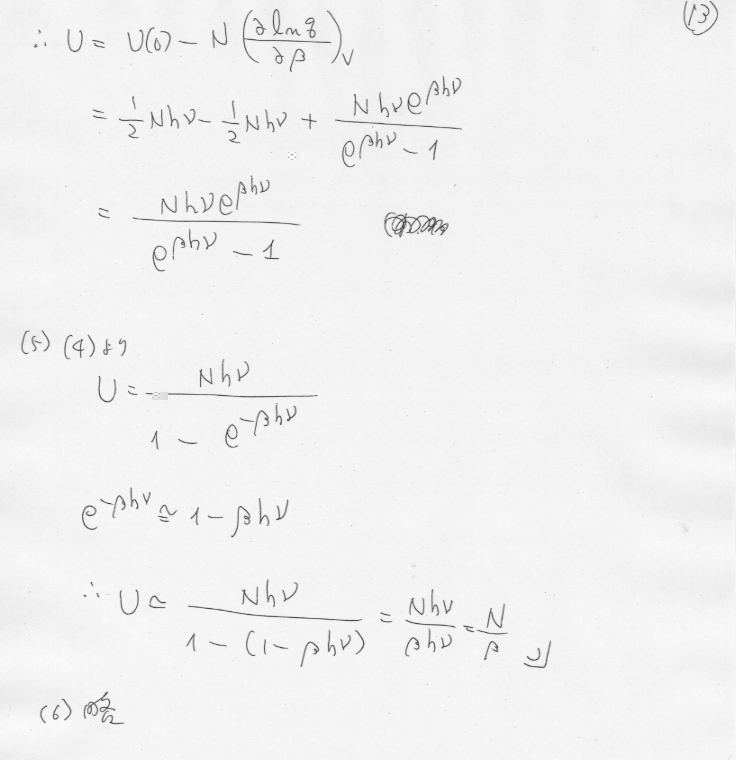 (13)
∴ U = U(0) − N (∂ ln q / ∂β)_V
= 1/2 Nhν − 1/2 Nhν + Nhνe^{βhν} / (e^{βhν} − 1)
= Nhνe^{βhν} / (e^{βhν} − 1)
(5) (4)より
U = Nhν / (1 − e^{−βhν})
e^{−βhν} ≃ 1 − βhν
∴ U ≃ Nhν / (1 − (1 − βhν)) = Nhν / βhν = N / β
(6)